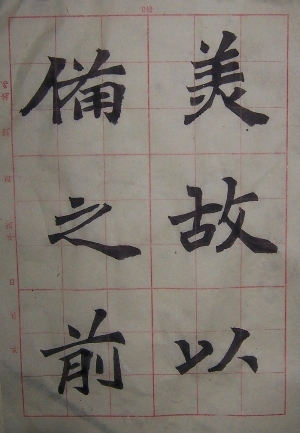 美故以
備之前